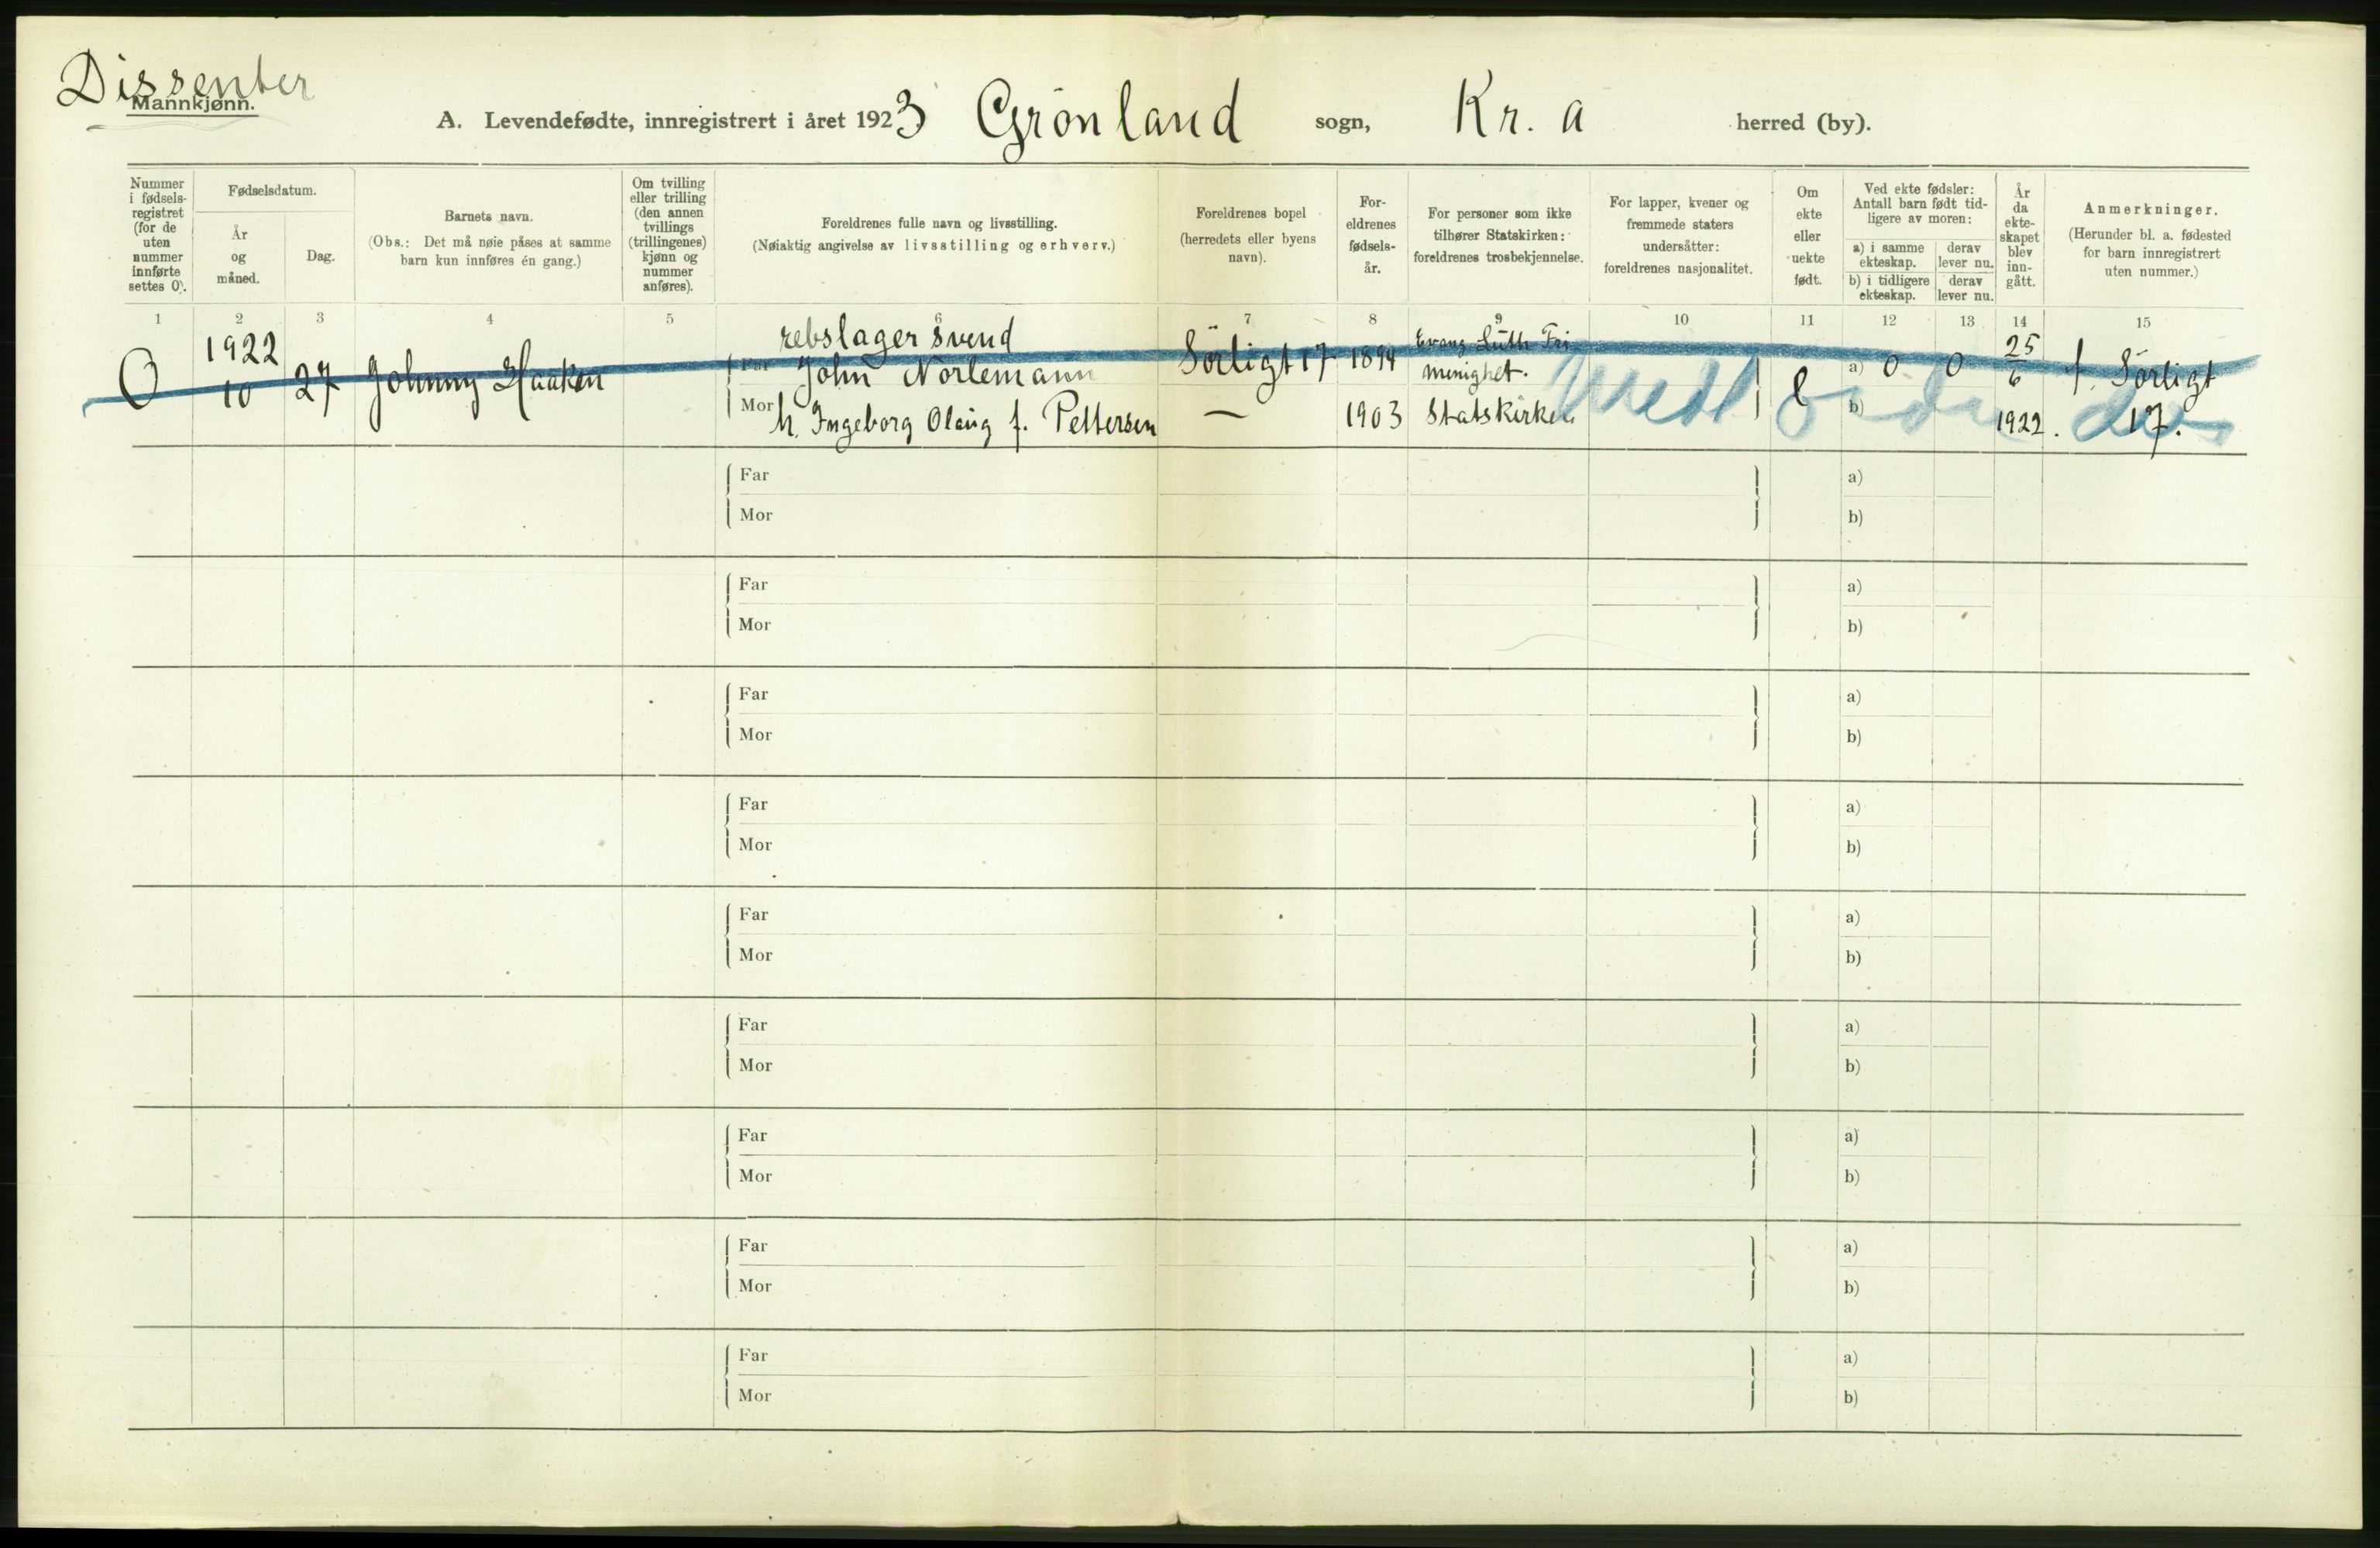 Dissenter
Mannkjønn.
A. Levendefødte, innregistrert i året 1923 Grönland sogn, Kr. a herred (by).
Nummer i fødsels-registret (for de uten nummer innførte settes 0).
Fødselsdatum.
År og måned.
Dag.
Barnets navn.
(Obs.: Det må nøie påses at samme barn kun innføres én gang.)
Om tvilling eller trilling (den annen tvillings (trillingenes) kjønn og nummer anføres).
Foreldrenes fulle navn og livsstilling.
(Nøiaktig angivelse av livsstilling og erhverv.)
Foreldrenes bopel (herredets eller byens navn).
For-eldrenes fødsels-år.
For personer som ikke tilhører Statskirken: foreldrenes trosbekjennelse.
For lapper, kvener og fremmede staters undersåtter: foreldrenes nasjonalitet.
Om ekte eller uekte født.
Ved ekte fødsler: Antall barn født tid-ligere av moren:
a) i samme ekteskap.
derav lever nu.
b) i tidligere ekteskap.
derav lever nu.
År da ekte-skapet blev inn-gått.
Anmerkninger.
(Herunder bl. a. fødested for barn innregistrert uten nummer.)
1 2 3 4 5 6 7 8 9 10 11 12 13 14 15
rebslager svend
0 1922 10 27 Johnny Haaken Far John Nortemann Sörligt 17 1894 Evang Luth Fri menighet. e a) 0 0 25/6 f. Sörligt
Mor h. Ingeborg Olaug f. Pettersen — 1903 Statskirken b) 1922. 17.
Far a)
Mor b)
Far a)
Mor b)
Far a)
Mor b)
Far a)
Mor b)
Far a)
Mor b)
Far a)
Mor b)
Far a)
Mor b)
Far a)
Mor b)
Far a)
Mor b)